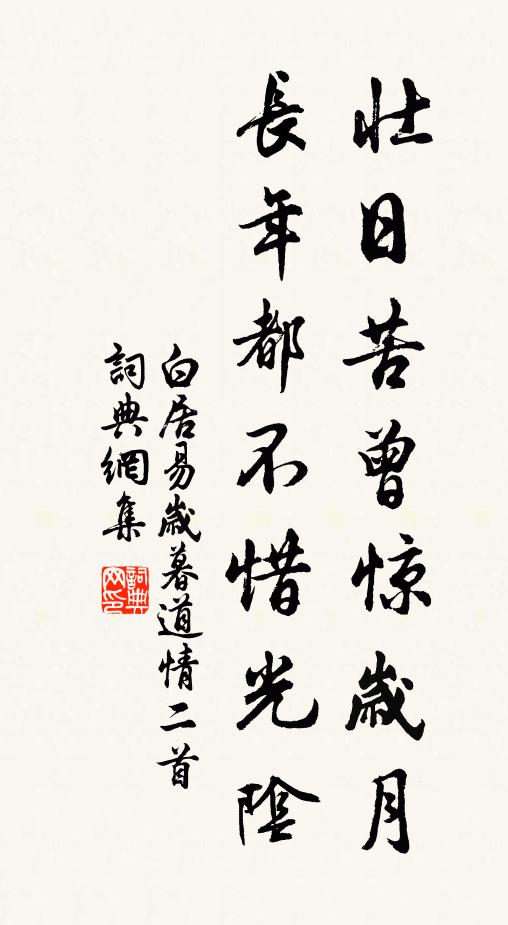 壮日苦曾惊歲月
長年都不惜光陰
白居易歲暮道情二首
詞典網集
詞典网印